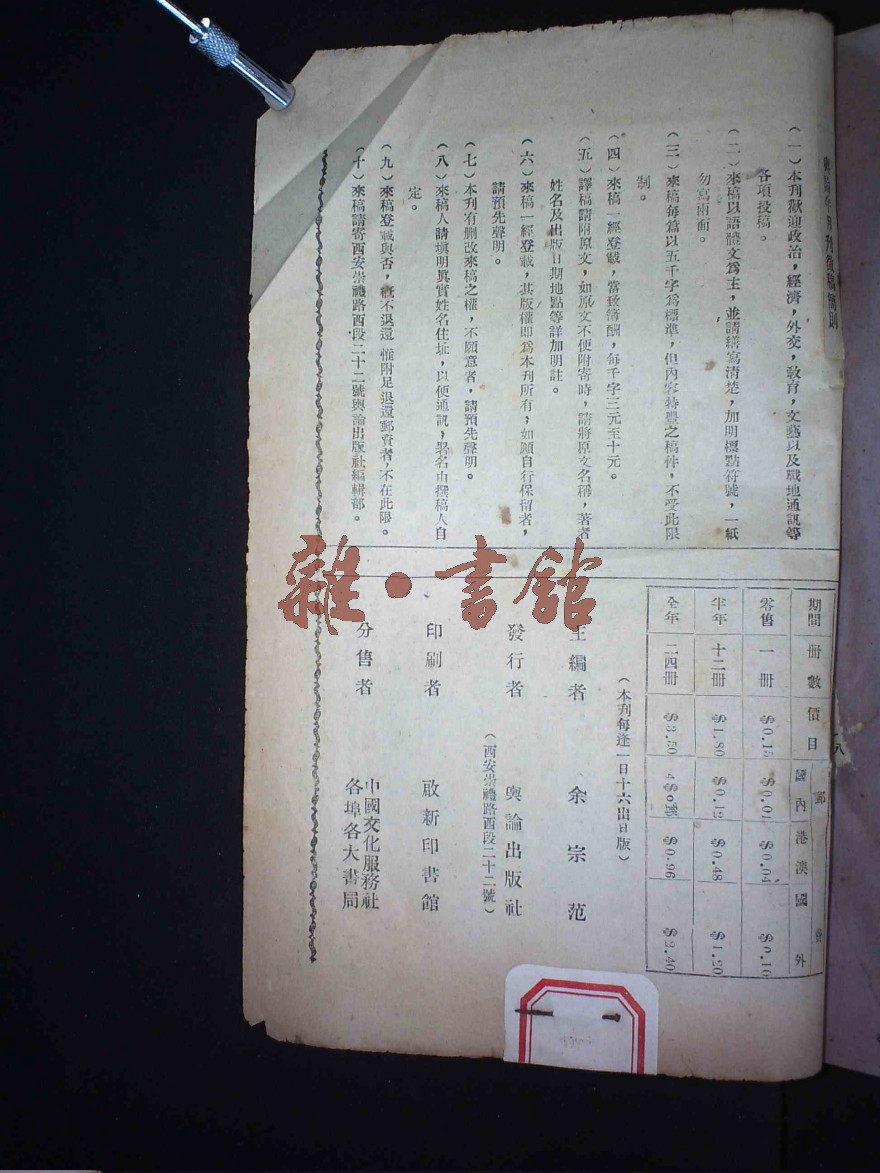 月刊徵稿簡則
（一）本刊歡迎政治，經濟，外交，敎育，文藝以及戰地通訊等
各項投稿。
（二）來稿以語體文爲主，並請繕寫清楚，加明標點符號，一紙
勿寫兩面。
（三）來稿每篇以五千字爲標準，但內容特豐之稿件，不受此限
制。
（四）來稿一經登載，當致簿酬，每千字三元至十元。
（五）譯稿請附原文，如原文不便附寄時，請將原文名稱，著者
姓名及出版日期地點等詳加明註。
（六）來稿一經登載，其版權即爲本刊所有，如願自行保留者，
請預先聲明。
（七）本刊有删改來稿之權，不願意者，請預先聲明。
（八）來稿人請塡明眞實姓名住址，以便通訊，署名由撰稿人自
定。
（九）來稿登載與否，槪不退還 惟附足退還郵費者，不在此限。
（十）來稿請寄西安崇禮路西段二十二號輿論出版社編輯部。
期間 册數 價目 郵
國內 港澳 國外
零售 一册 $0.15 $0.01 $0.04 $0.10
半年 十二册 $1.80 $0.12 $0.48 $1.20
全年 二四册 $3.50 $0.96 $2.40
（本刊每逢一日十六出日版）
主編者 余宗范
發行者 輿論出版社
（西安崇禮路西段二十二號）
印刷者 啟新印書館
分售者 中國文化服務社
各埠各大書局
雜·書館